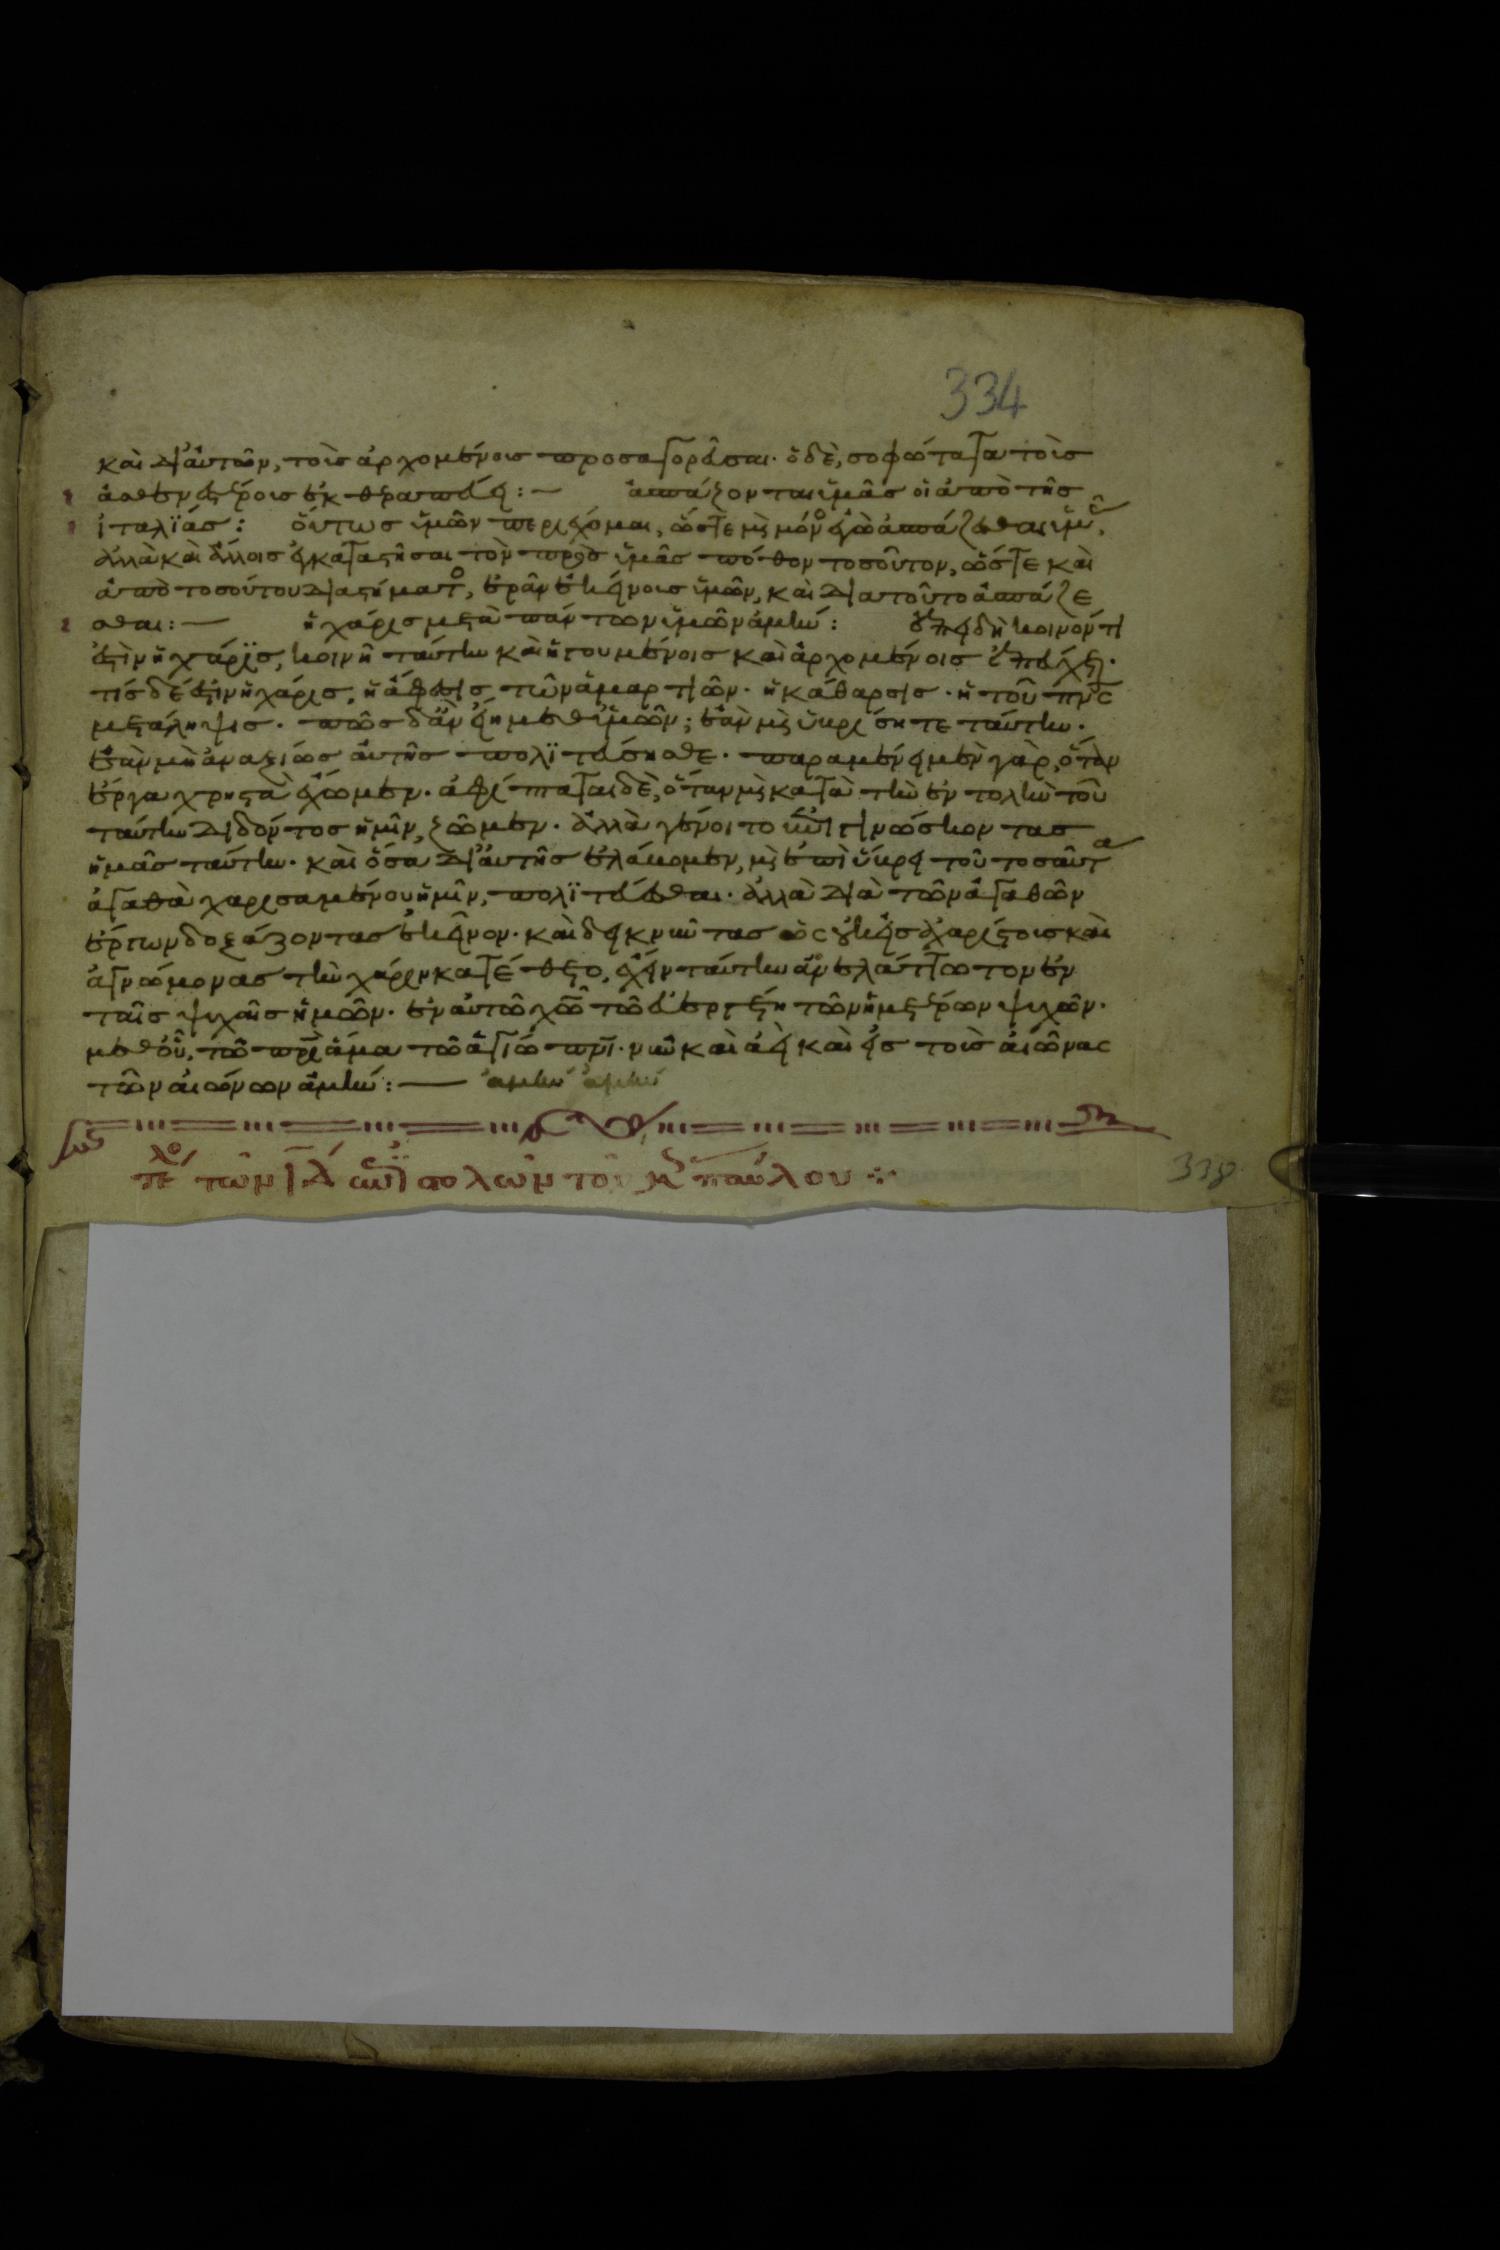 334
καὶ δι' αὐτῶν, τοῖς ἀρχομένοις προσαγορεῦσαι· ὅδε, σοφώτατα τοῖς
ἀσθενεστέροις ἐκ θεραπεύει:—  ἀσπάζονται ὑμᾶς οἱ ἀπὸ τῆς
ἰταλϊάς:  οὕτως ὑμῶν περιέχομαι, ὥστε μὴ μόνον ἐγὼ ἀσπάζεσθαι ὑμᾶς,
ἀλλὰ καὶ ἄλλοις ἐγκαταστῆσαι τὸν πρὸς ὑμᾶς πόθον τοσοῦτον, ὥστε καὶ
ἀπὸ τοσούτου διαστήματος, ἐρᾶν ἐκείνοις ὑμῶν, καὶ διατοῦτο ἀσπάζε
σθαι:—  ἡ χάρις μετὰ πάντων ὑμῶν ἀμήν:  ἐπειδὴ κοινόν τι
ἐστὶν ἡ χάρϊς, κοινὴ ταύτην καὶ ἡγουμένοις καὶ ἀρχομένοις ἐπεύχεται·
τίς δέ ἐστιν ἡ χάρις, ἡ ἄφεσις τῶν ἁμαρτιῶν· ἡ κάθαρσις· ἡ τοῦ πνς
μετάληψις· πῶς δ' ἂν εἴη μεθ' ὑμῶν; ἐὰν μὴ ὑβρίσητε ταύτην·
ἐὰν μὴ ἀναξίως αὐτῆς πολϊτεύσησθε· παραμένει μὲν γὰρ, ὅταν
ἔργα χρηστὰ ἔχωμεν· ἀφίπταται δὲ, ὅταν μὴ κατὰ τὴν ἐντολὴν τοῦ
ταύτην διδόντος ἡμῖν, ζῶμεν· ἀλλὰ γένοιτο ἐπιγινώσκοντας
ἡμᾶς ταύτην· καὶ ὅσα δι' αὐτῆς ἐλάβομεν, μὴ ἐπὶ ὕβρει τοῦ τοσαῦτα
ἀγαθὰ χαρισαμένου ἡμῖν, πολϊτεύεσθαι· ἀλλὰ διὰ τῶν ἀγαθῶν
ἔργων δοξάζοντας ἐκεῖνον· καὶ δεικνῦντας ὡς οὐκ εἰς ἀχαρίστοις καὶ
ἀγνώμονας τὴν χάριν κατέθετο, εἶεν ταύτην ἀνελάττωτον ἐν
ταῖς ψυχαῖς ἡμῶν· ἐν αὐτῶ χῶ τῶ εὐεργέτη τῶν ἡμετέρων ψυχῶν·
μεθ' οὗ, τῶ πρὶ ἅμα τῶ ἁγίω πνι· νῦν καὶ ἀεὶ καὶ εἰς τοὺς αἰῶνας
τῶν αἰώνων ἀμήν:— ἀμήν ἀμήν
τῶν ΙΔ ἐπιστολῶν τοῦ παύλου
338